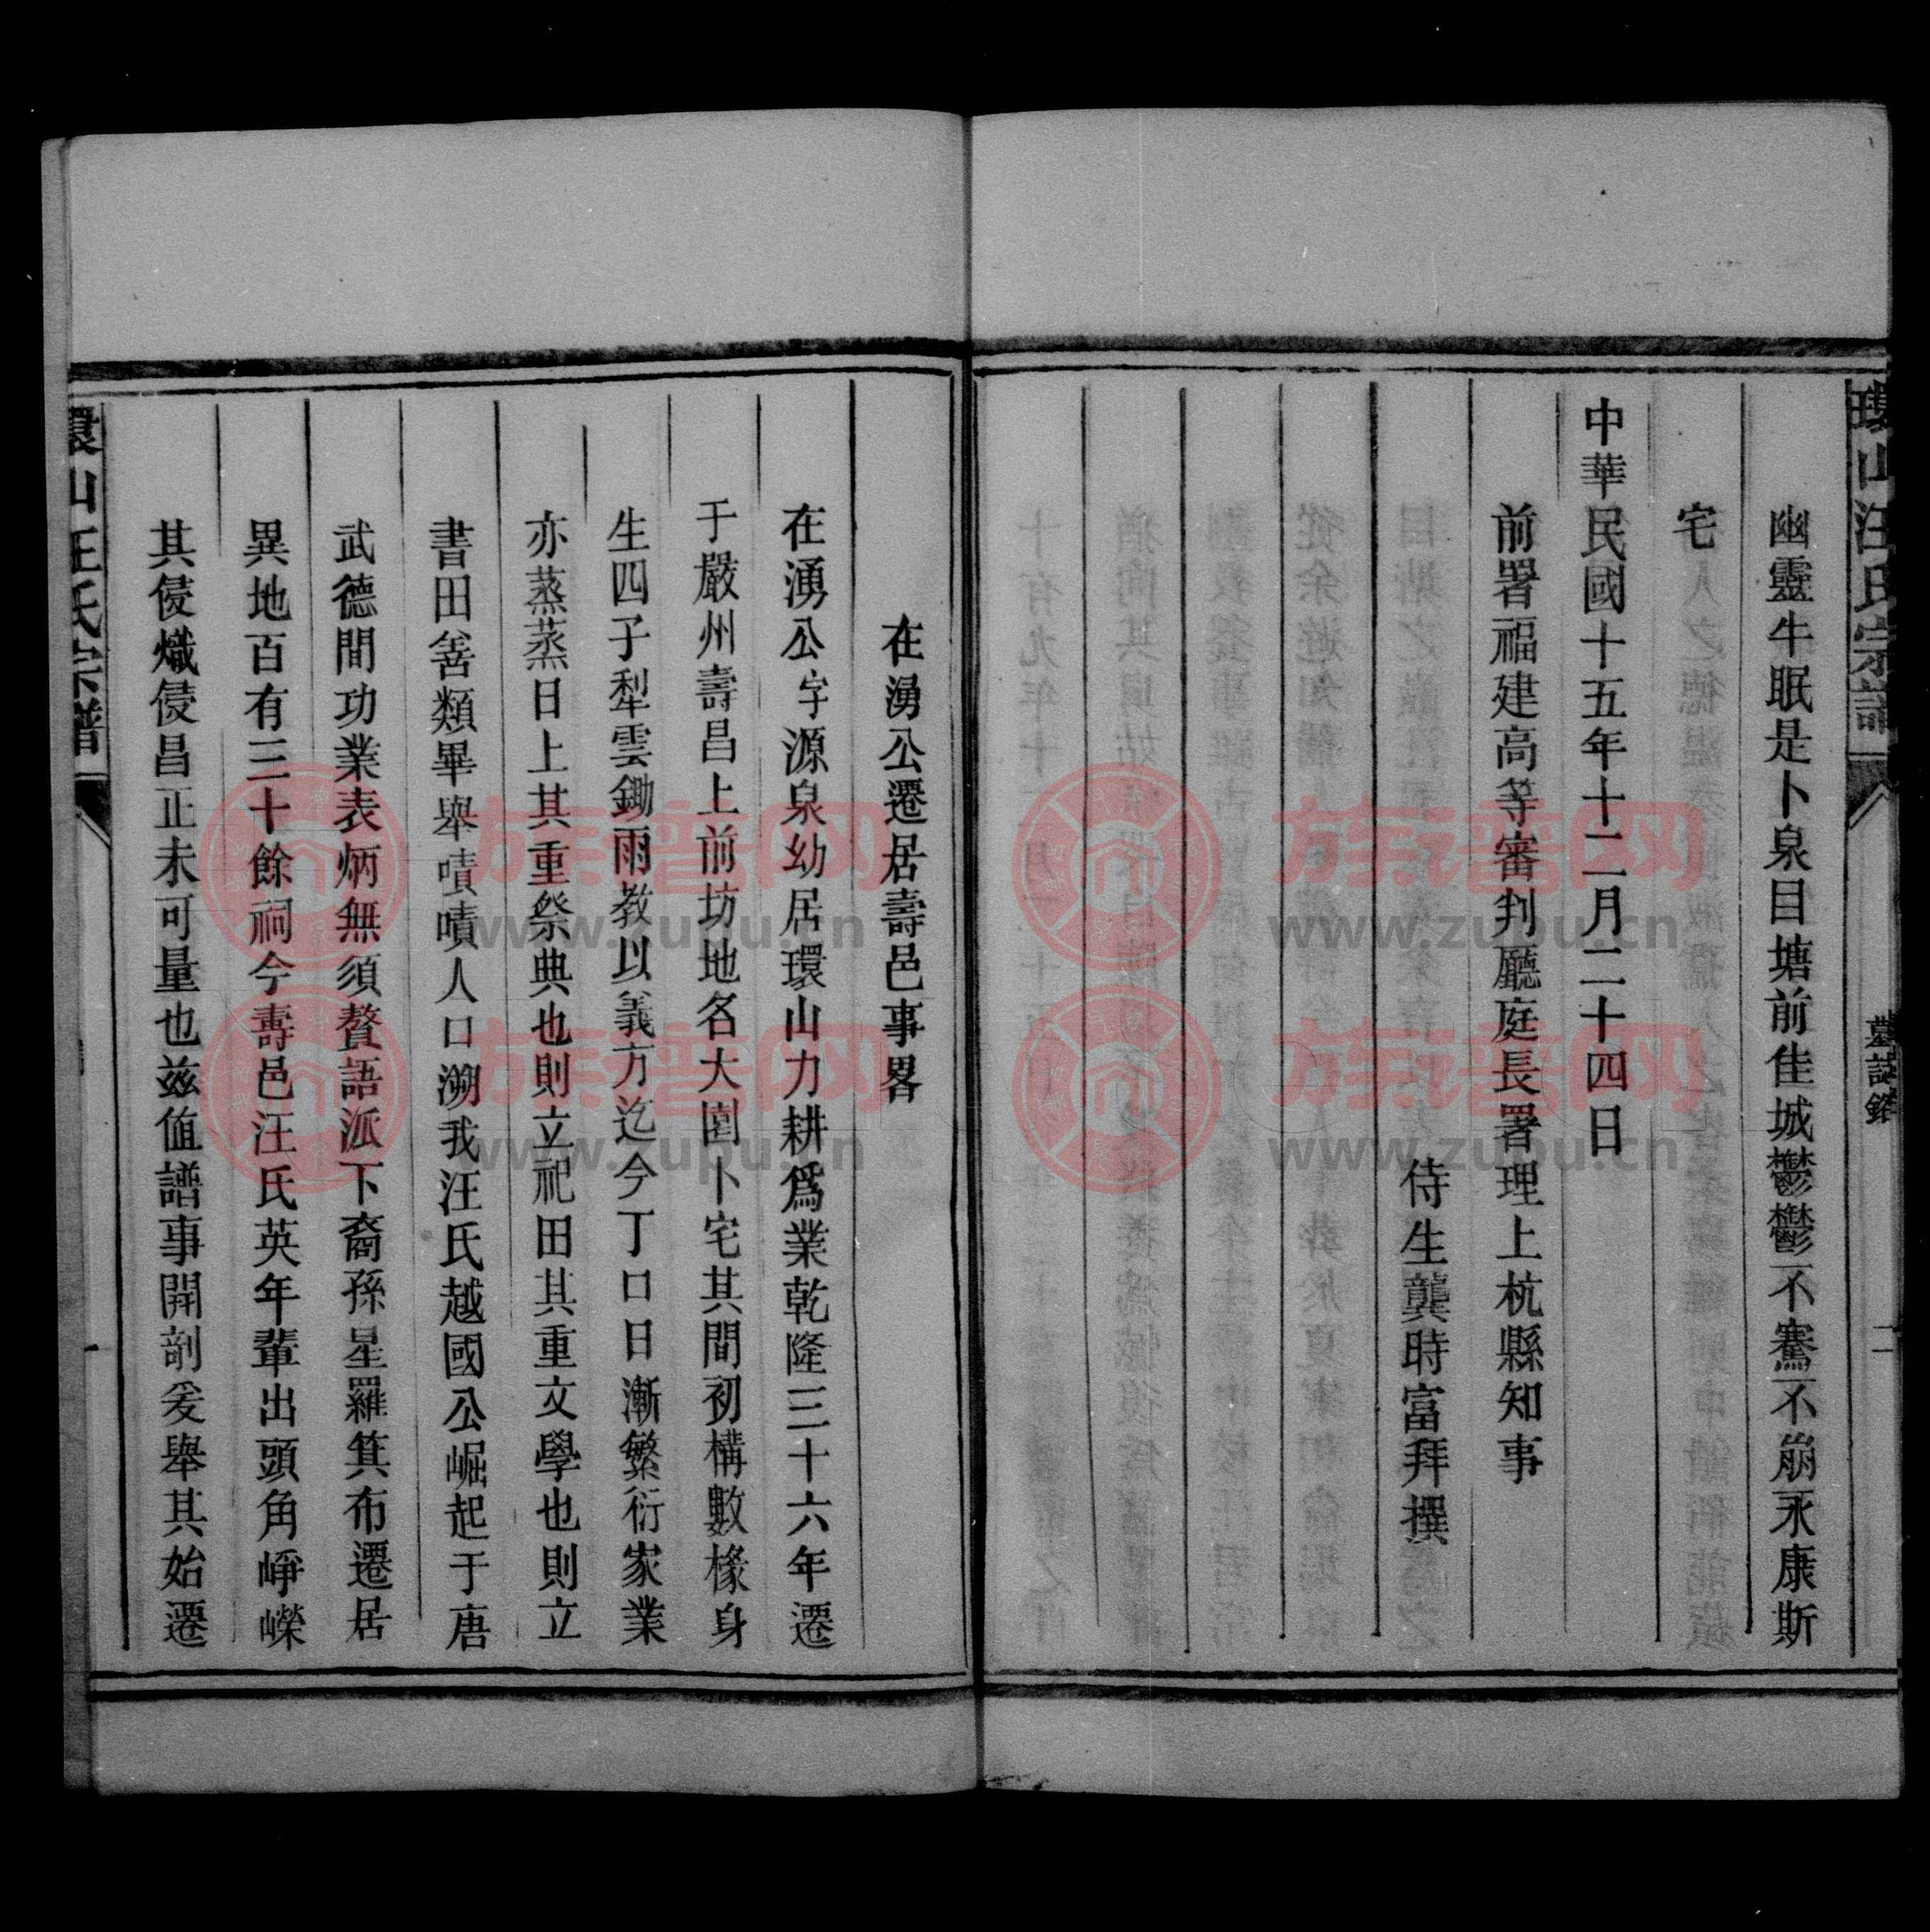 環山汪氏宗譜
墓誌銘
二
幽靈牛眠是卜泉目塘前佳城鬱鬱不騫不崩永康斯
宅
中華民國十五年十二月二十四日
前署福建高等審判廳庭長署理上杭縣知事
侍生龔時富拜撰
在湧公遷居壽邑事畧
在湧公字源泉幼居環山力耕爲業乾隆三十六年遷
于嚴州壽昌上前坊地名大園卜宅其間初構數椽身
生四子犁雲鋤雨教以義方迄今丁口日漸繁衍家業
亦蒸蒸日上其重祭典也則立祀田其重文學也則立
書田善類畢舉嘖嘖人口溯我汪氏越國公崛起于唐
武德間功業表炳無須贅語派下裔孫星羅箕布遷居
異地百有三十餘祠今壽邑汪氏英年輩出頭角崢嶸
其侵熾侵昌正未可量也兹值譜事開剞爰舉其始遷
環山汪氏宗譜
族谱网
www.zupu.cn
族谱网
www.zupu.cn
族谱网
www.zupu.cn
族谱网
www.zupu.cn